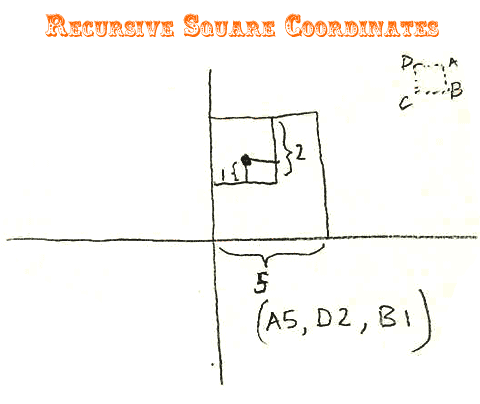 Recursive Square Coordinates
D A
C B
1 2
5
(A5, D2, B1)